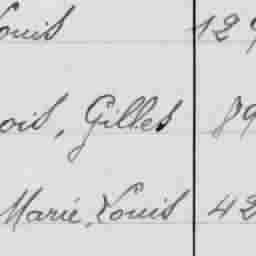 Louis 129
ois, Gilles 89
Marie, Louis 42